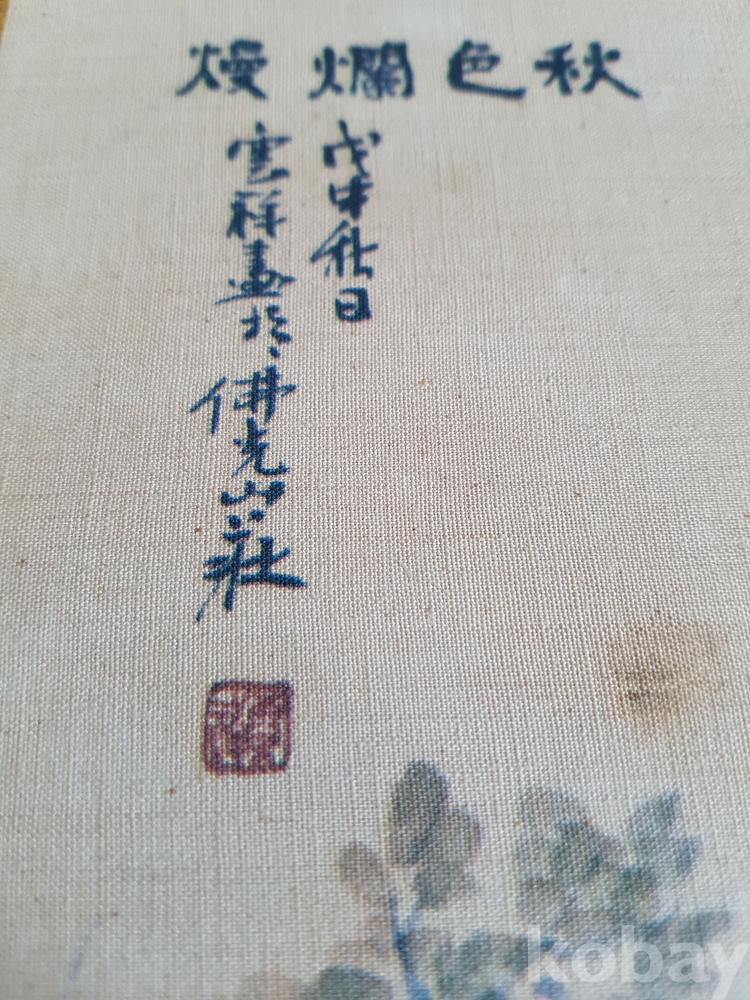 秋色爛熳
戊申秋日
雲祥畫於佛光山莊
kobay